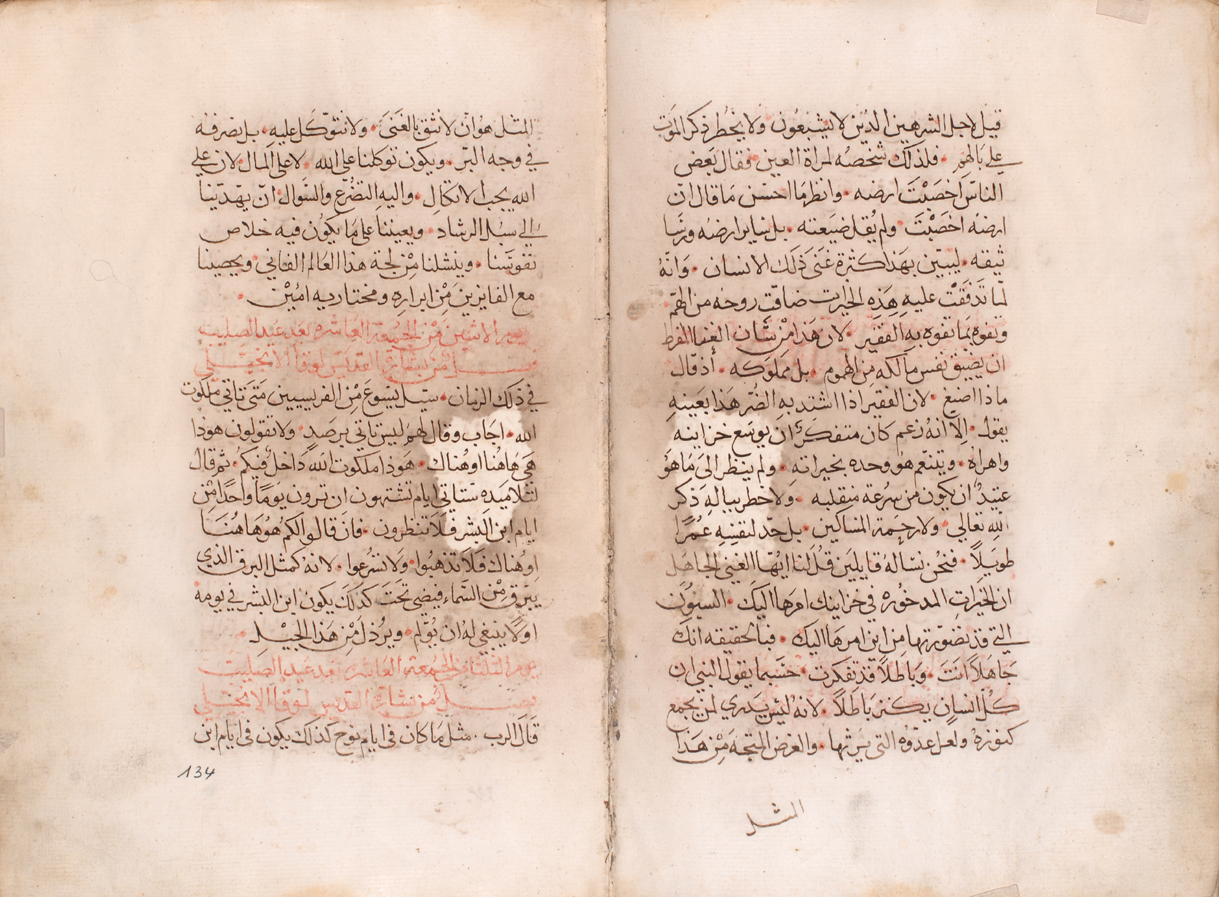 قيل لاجل الشرهين الذين لا يشبعون ولا يخطر ذكر الموت
علي بالهم • فلذلك شخصه لمراة العين • فقال بعض
الناس اخصبت ارضه • وانظر ما احسن ما قال ان
ارضه اخصبت • ولم يقل ضيعته • بل ساير ارضه ورساتيقه
ليبين بهذا كثرة غني ذلك الانسان • وانه
لما تدفقت عليه هذه الخيرات ضاقت روحه من الهم •
وتفوه بما تفوه به الفقير • لان هذا من شان الغنا المفرط
ان يضيق نفس مالكه من الهموم • بل مملوكه • اذ قال
ماذا اصنع • لان الفقير اذا اشتد به الضر هذا بعينه
يقول • الا انه زعم كان متفكرا ان يوسع خزاينه
واهراه • ويتنعم هو وحده بخيراته • ولم ينظر الى ما هو
عتيد ان يكون من سرعة منقلبه • ولا خطر بباله ذكر
الله تعالي • ولا رحمة المساكين • بل حد لنفسه عمرا
طويلا • فنحن نساله قايلين قل لنا ايها الغني الجاهل
ان الخيرات المدخوره في خزاينك امرها اليك • السنون
التي قد تصورتها من اين امرها اليك • فبالحقيقه انك
جاهلا انت • وباطلا قد تفكرت • حسبما يقول النبي ان
كل انسان يكنز باطلا • لانه ليس يدري لمن يجمع
كنوزه ولعل عدوه التي يرثها • والغرض المتجه من هذا
المثل
المثل هو ان لا نثق بالغنى • ولا نتوكل عليه • بل نصرفه
في وجه البر • ويكون توكلنا على الله • لا على المال • لان علي
الله يجب الاتكال • واليه التضرع والسوال ان يهدينا
الي سبل الرشاد • ويعيننا على ما يكون فيه خلاص
نفوسنا • وينشلنا من لجة هذا العالم الفاني • ويحصينا
مع الفايزين من ابراره ومختاريه امين •
يوم الاثنين من الجمعه العاشره بعد عيد الصليب
فصل من بشارة القديس لوقا الانجيلي
في ذلك الزمان • سيل يسوع من الفريسيين متى تاتي ملكوت
الله • اجاب وقال لهم ليس تاتي برصد • ولا تقولون هوذا
هي هاهنا او هناك • هوذا ملكوت الله داخل فيكم • ثم قال
لتلاميده ستاتي ايام تشتهون ان ترون يوما واحدا من
ايام ابن البشر فلا تنظرون • فان قالوا لكم هوها هنا
او هناك فلا تذهبوا • ولا تسرعوا • لانه كمثل البرق الذي
يبرق من السماء فيضي تحت كذلك يكون ابن البشر في يومه
اولا ينبغي له ان يولم • ويرذل من هذا الجيل •
يوم الثلثاء الجمعه العاشره بعد عيد الصليب
فصل من بشارة القديس لوقا الانجيلي
قال الرب • مثل ما كان في ايام نوح كذلك يكون في ايام ابن
134